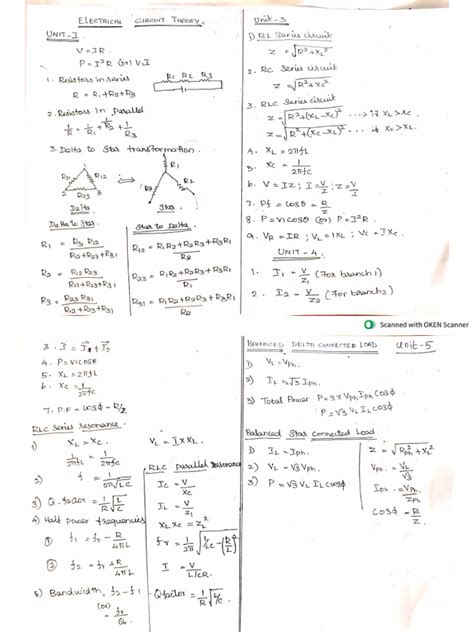 ELECTRICAL CIRCUIT THEORY.
UNIT-I
V = IR.
P = I²R (or) V.I
1. Resistors in series
R = R1+R2+R3
R1 R2 R3
2. Resistors in parallel
1/R = 1/R1 + 1/R2 + 1/R3
3. Delta to Star transformation.
R31 R12
R23
1
2
3
Delta
⇔
R1
R3
Star
Delta to Star.
R1 = R31 R12 / R12+R23+R31
R2 = R12 R23 / R12+R23+R31
R3 = R23 R31 / R12+R23+R31
Star to Delta.
R12 = R1R2+R2R3+R3R1 / R3
R23 = R1R2+R2R3+R3R1 / R1
R31 = R1R2+R2R3+R3R1 / R2
Unit-3
1) RL Series circuit
Z = √R²+XL²
2. RC Series circuit
Z = √R²+XC²
3. RLC Series circuit
Z = √R²+(XL-XC)² ... if XL>XC.
Z = √R²+(XC-XL)² ... if XC>XL.
4. XL = 2πfL
5. XC = 1/2πfC
6. V = IZ; I = V/Z; Z = V/I
7. Pf = cosθ = R/Z
8. P = VI cosθ (or) P = I²R.
9. VR = IR; VL = IXL; VC = IXC.
UNIT - 4.
1. I1 = V/Z1 (For branch 1)
2. I2 = V/Z2 (For branch 2)
Scanned with OKEN Scanner
3. I = I1 + I2
4. P = VI cosθ
5. XL = 2πfL
6. XC = 1/2πfC
7. P.F = cosθ = R/Z
RLC Series resonance.
1) XL = XC.
1/2πfL = 1/2πfC
VL = I×XL.
2) f = 1/2π√LC
3) Q.factor = 1/R √L/C
4) Half Power frequencies
① f1 = fr - R/4πL
② f2 = fr + R/4πL
5) Bandwidth = f2 - f1
(or)
= fr/Q.
RLC Parallel Resonance
IC = V/XC
IL = V/Z1
XL XC = Z1²
fr = 1/2π √1/LC - (R/L)²
I = V/L/CR.
Q factor = 1/R √L/C
BALANCED DELTA CONNECTED LOAD
Unit-5
1) VL = VPh.
2) IL = √3 IPh.
3) Total Power P = 3×VPh IPh cosϕ
P = √3 VL IL cosϕ
Balanced Star Connected Load
1) IL = IPh.
2) VL = √3 VPh.
3) P = √3 VL IL cosϕ
Z = √RPh²+XL²
VPh = VL/√3
IPh = VPh/ZPh
cosϕ = R/Z.